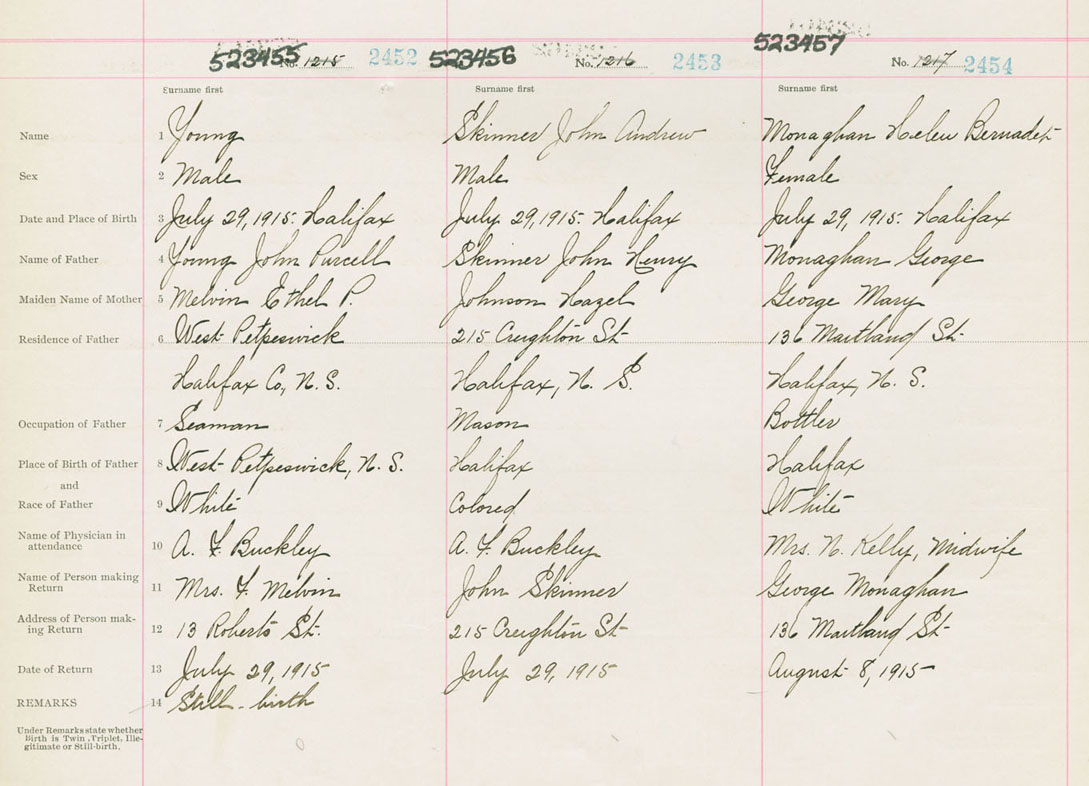 523455 No. 1215 2452 523456 No. 1216 2453 523457 No. 1217 2454
Surname first Surname first Surname first
Name 1 Young Skinner John Andrew Monaghan Helen Bernadet
Sex 2 Male Male Female
Date and Place of Birth 3 July 29, 1915. Halifax July 29, 1915. Halifax July 29, 1915. Halifax
Name of Father 4 Young John Purcell Skinner John Henry Monaghan George
Maiden Name of Mother 5 Melvin Ethel P. Johnson Hazel George Mary
Residence of Father 6 West Petpeswick 215 Creighton St 136 Maitland St.
Halifax Co, N. S. Halifax, N. S. Halifax, N. S.
Occupation of Father 7 Seaman Mason Bottler
Place of Birth of Father 8 West Petpeswick, N. S. Halifax Halifax
and
Race of Father 9 White Colored White
Name of Physician in
attendance 10 A. F. Buckley A. F. Buckley Mrs. N. Kelly, Midwife
Name of Person making
Return 11 Mrs. F. Melvin John Skinner George Monaghan
Address of Person mak-
ing Return 12 13 Roberts St. 215 Creighton St 136 Maitland St
Date of Return 13 July 29, 1915 July 29, 1915 August 8, 1915
REMARKS 14 Still-birth
Under Remarks state whether
Birth is Twin, Triplet, Ille-
gitimate or Still-birth.